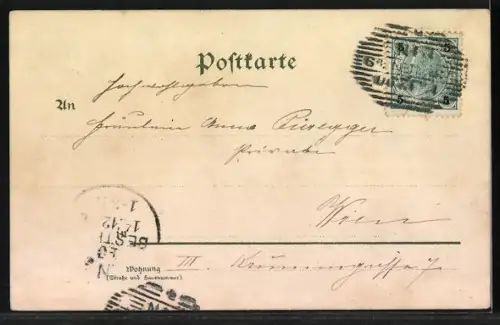 Postkarte
Hochwohlgeboren
An
Fräulein Anna
Private
Wien
Wohnung
(Straße und Hausnummer)
III. Krummgasse 7
5 5
5 5
BESTELLT